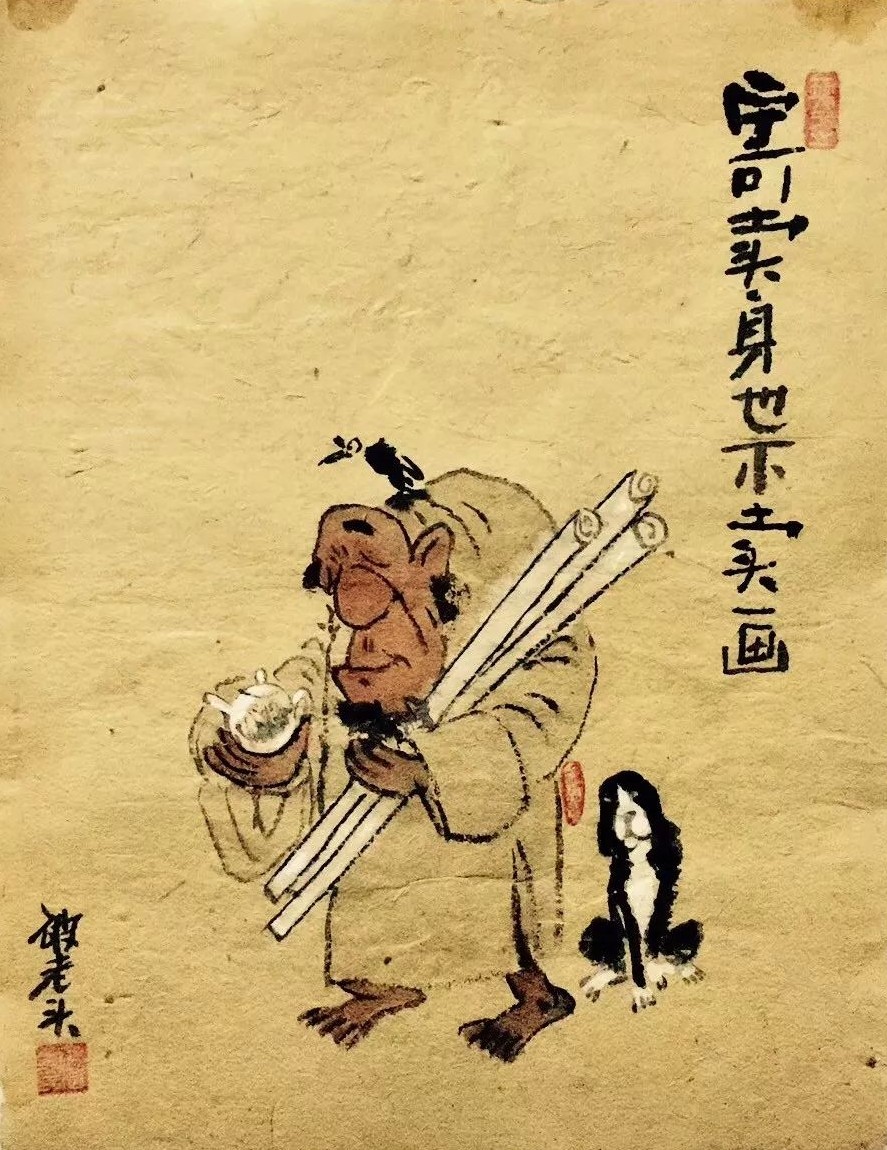 宁可卖身也不卖画
老头